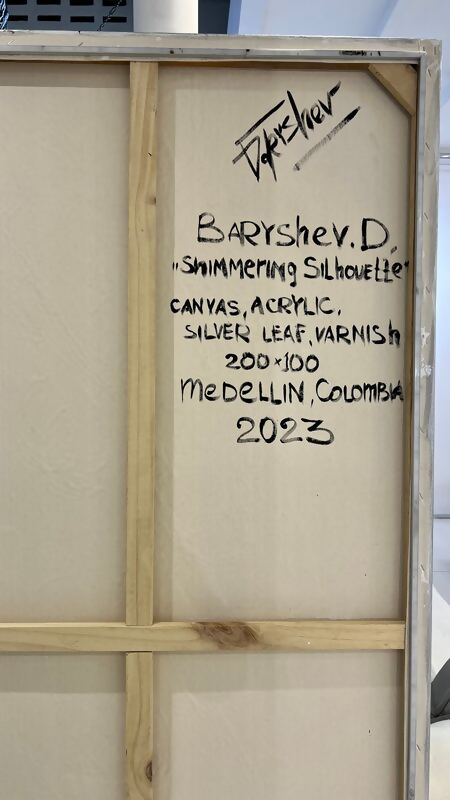 BARYSheV. D.
"ShiMMering SilhoueTTe"
CANVAS, ACRYLIC,
SILVER LEAF, VARNISh
200×100
MeDELLIN, COLOMBIA
2023